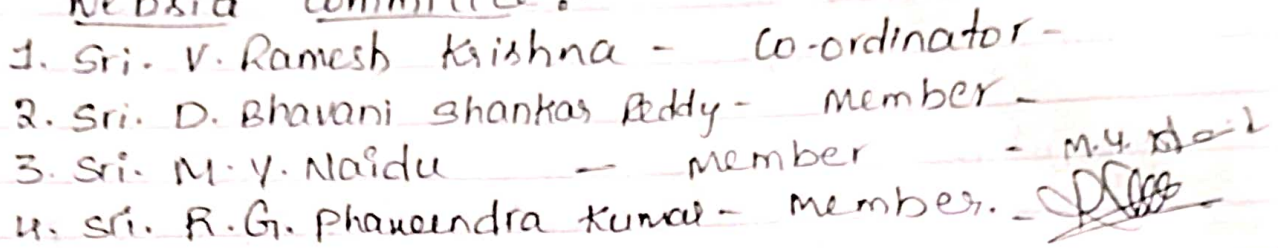 Website Committee:
1. Sri. V. Ramesh Krishna - Co-ordinator -
2. Sri. D. Bhavani Shankar Reddy - Member -
3. Sri. M. Y. Naidu - Member - M. Y.
4. Sri. R. G. Phaneendra Kumar - Member. -